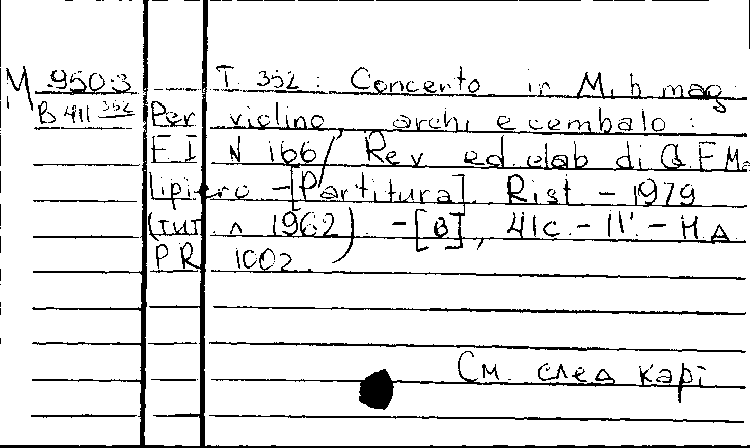 M 950-3 T. 352 : Concerto in Mi b mag.
B 411 352 Per violino, archi e cembalo :
F. I N 166 / Rev. ed elab di G. F. Ma
lipiero - [Partitura]. Rist - 1979
(тит. л 1962) . - [В], 41 с. - 11'. - Н. Д.
P. R. 1002.
См. след карт